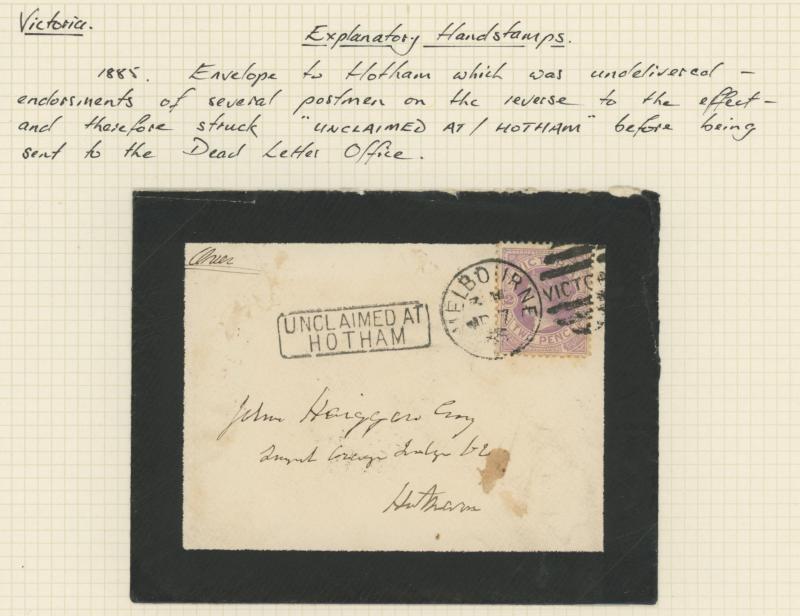 Victoria.
Explanatory Handstamps.
1885. Envelope to Hotham which was undelivered -
endorsments of several postmen on the reverse to the effect -
and therefore struck "UNCLAIMED AT / HOTHAM" before being
sent to the Dead Letter Office.
MELBOURNE
VICTO
TWO PENC
UNCLAIMED AT
HOTHAM
John Esq
Hotham